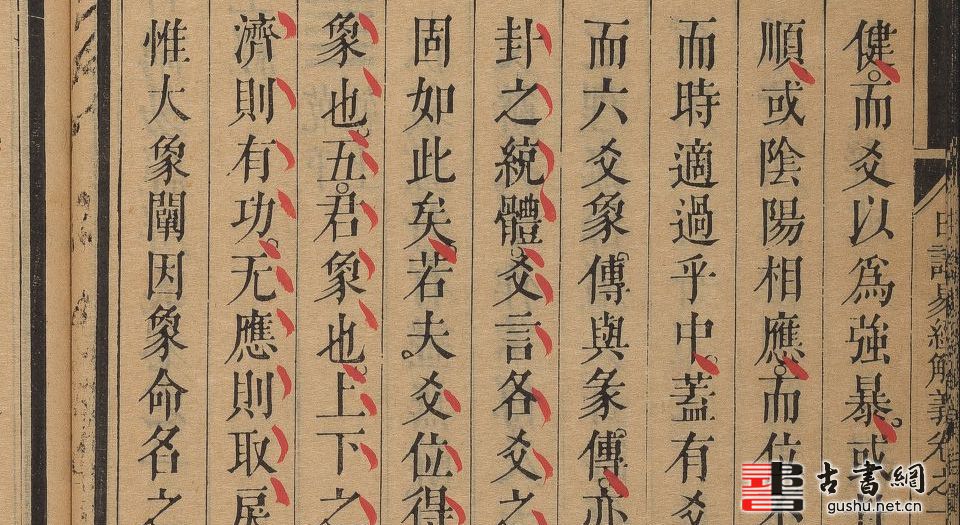 健而爻以為強暴或
順或陰陽相應而位
而時適過乎中蓋有爻
而六爻象傳與彖傳亦
卦之統體爻言各爻之
固如此矣若夫爻位得
象也五君象也上下之
濟則有功无應則取戾
惟大象闡因象命名之
日講易經解義卷之一
古書網
gushu.net.cn